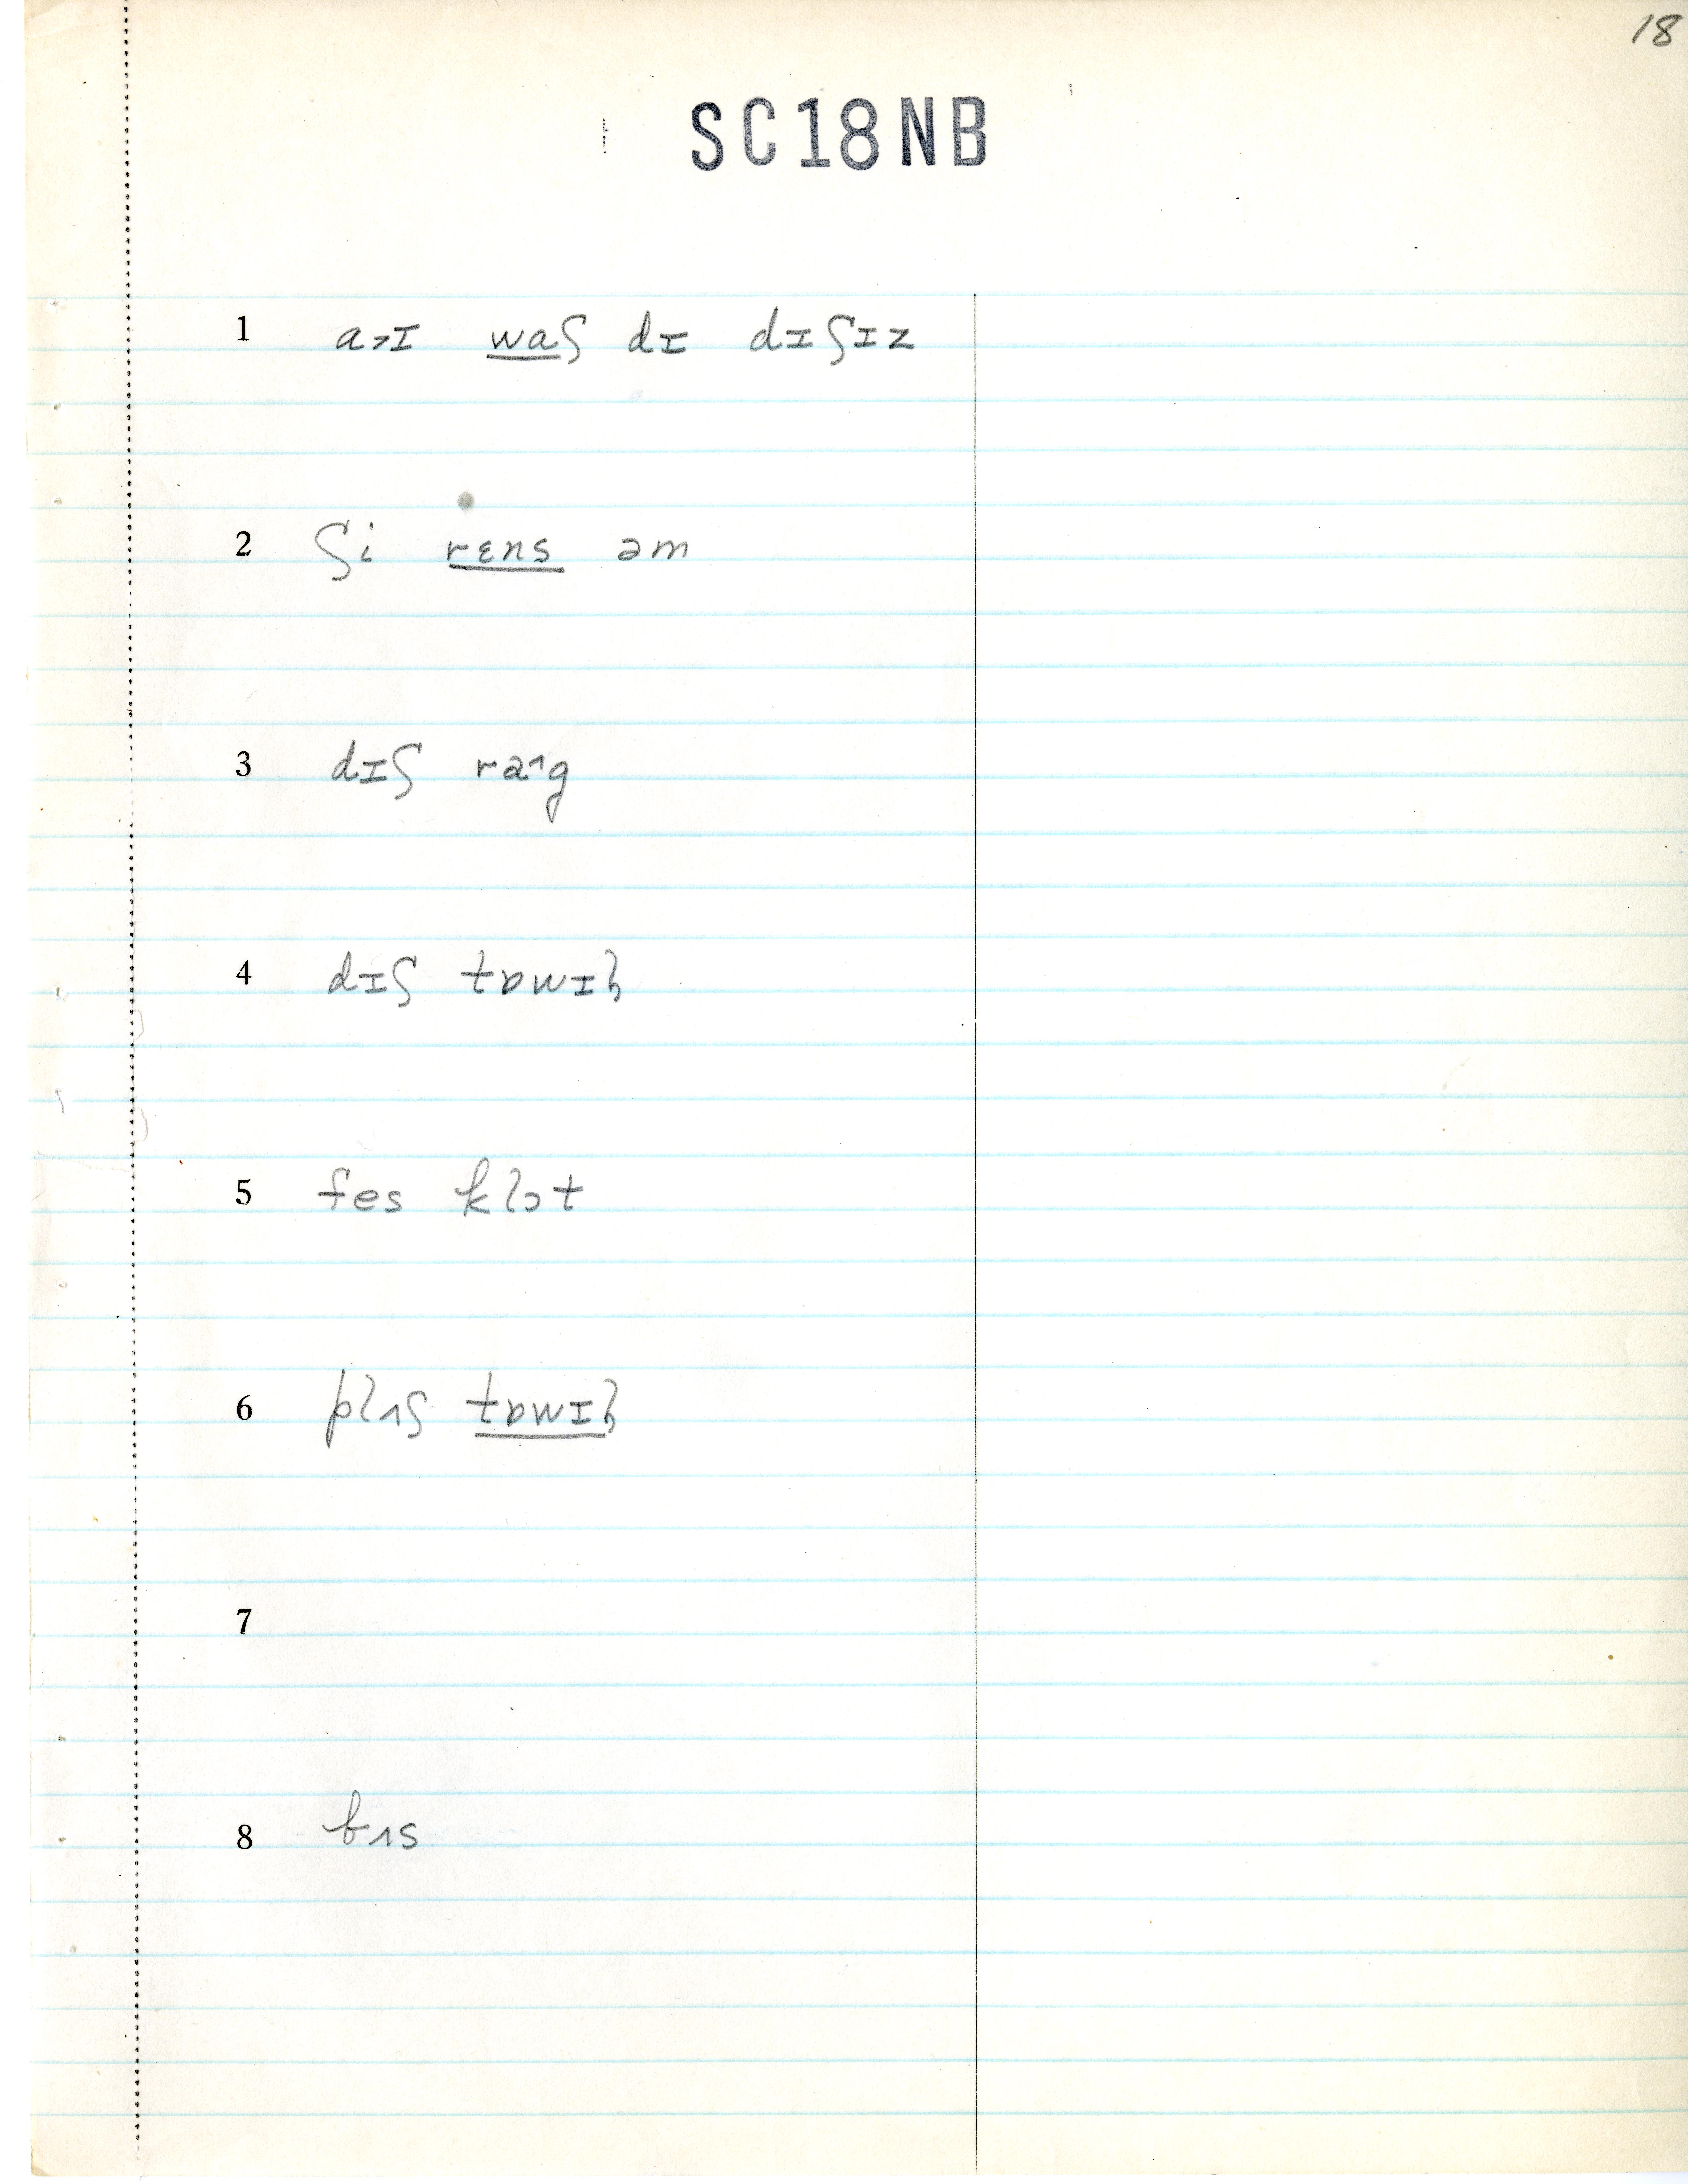 18
SC18NB
1 a˃ɪ waʃ dɪ dɪʃɪz
2 ʃi rɛns əm
3 dɪʃ raˑg
4 dɪʃ tɒwɪɫ
5 fes klɔt
6 plʌʃ tɒwɪɫ
7
8 bʌs